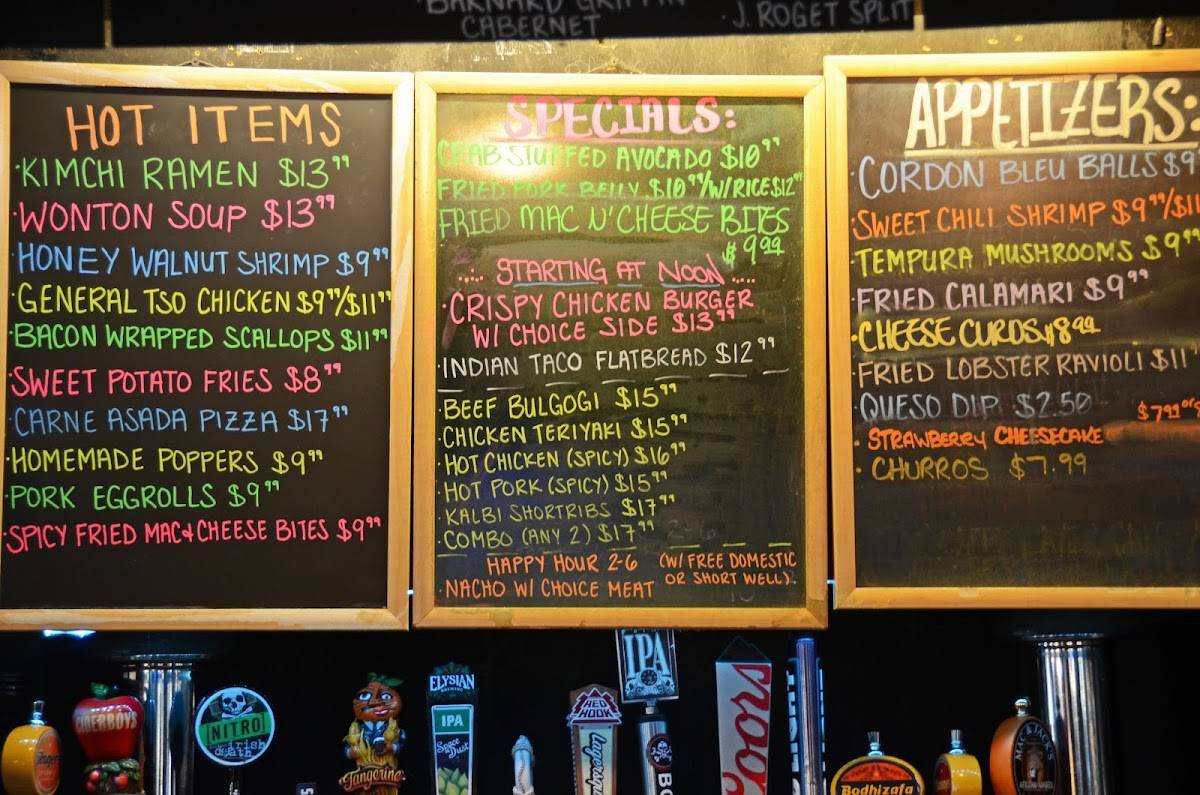 BARNARD GRIFFIN
CABERNET
. J. ROGET SPLIT
HOT ITEMS
·KIMCHI RAMEN $13⁹⁹
·WONTON SOUP $13⁹⁹
·HONEY WALNUT SHRIMP $9⁹⁹
·GENERAL TSO CHICKEN $9⁹⁹/$11⁹⁹
·BACON WRAPPED SCALLOPS $11⁹⁹
·SWEET POTATO FRIES $8⁹⁹
·CARNE ASADA PIZZA $17⁹⁹
·HOMEMADE POPPERS $9⁹⁹
·PORK EGGROLLS $9⁹⁹
·SPICY FRIED MAC & CHEESE BITES $9⁹⁹
SPECIALS:
CRAB STUFFED AVOCADO $10⁹⁹
FRIED PORK BELLY $10⁹⁹/W/RICE $12⁹⁹
FRIED MAC N' CHEESE BITES
$9⁹⁹
..:. STARTING AT NOON ....
·CRISPY CHICKEN BURGER
W/ CHOICE SIDE $13⁹⁹
·INDIAN TACO FLATBREAD $12⁹⁹
·BEEF BULGOGI $15⁹⁹
·CHICKEN TERIYAKI $15⁹⁹
·HOT CHICKEN (SPICY) $16⁹⁹
·HOT PORK (SPICY) $15⁹⁹
·KALBI SHORTRIBS $17⁹⁹
·COMBO (ANY 2) $17⁹⁹
HAPPY HOUR 2-6 (W/ FREE DOMESTIC
·NACHO W/ CHOICE MEAT OR SHORT WELL).
APPETIZERS:
·CORDON BLEU BALLS $9
·SWEET CHILI SHRIMP $9⁹⁹/$11
·TEMPURA MUSHROOMS $9⁹⁹
·FRIED CALAMARI $9⁹⁹
·CHEESE CURDS $8⁹⁹
·FRIED LOBSTER RAVIOLI $11
·QUESO DIP $2.50
· STRAWBERRY CHEESECAKE $7⁹⁹
· CHURROS $7.99
CIDERBOYS
NITRO
irish
death
Tangerine
ELYSIAN
IPA
Space
Dust
RED
HOOK
IPA
Coors
Bodhizafa
MAC & JACK'S